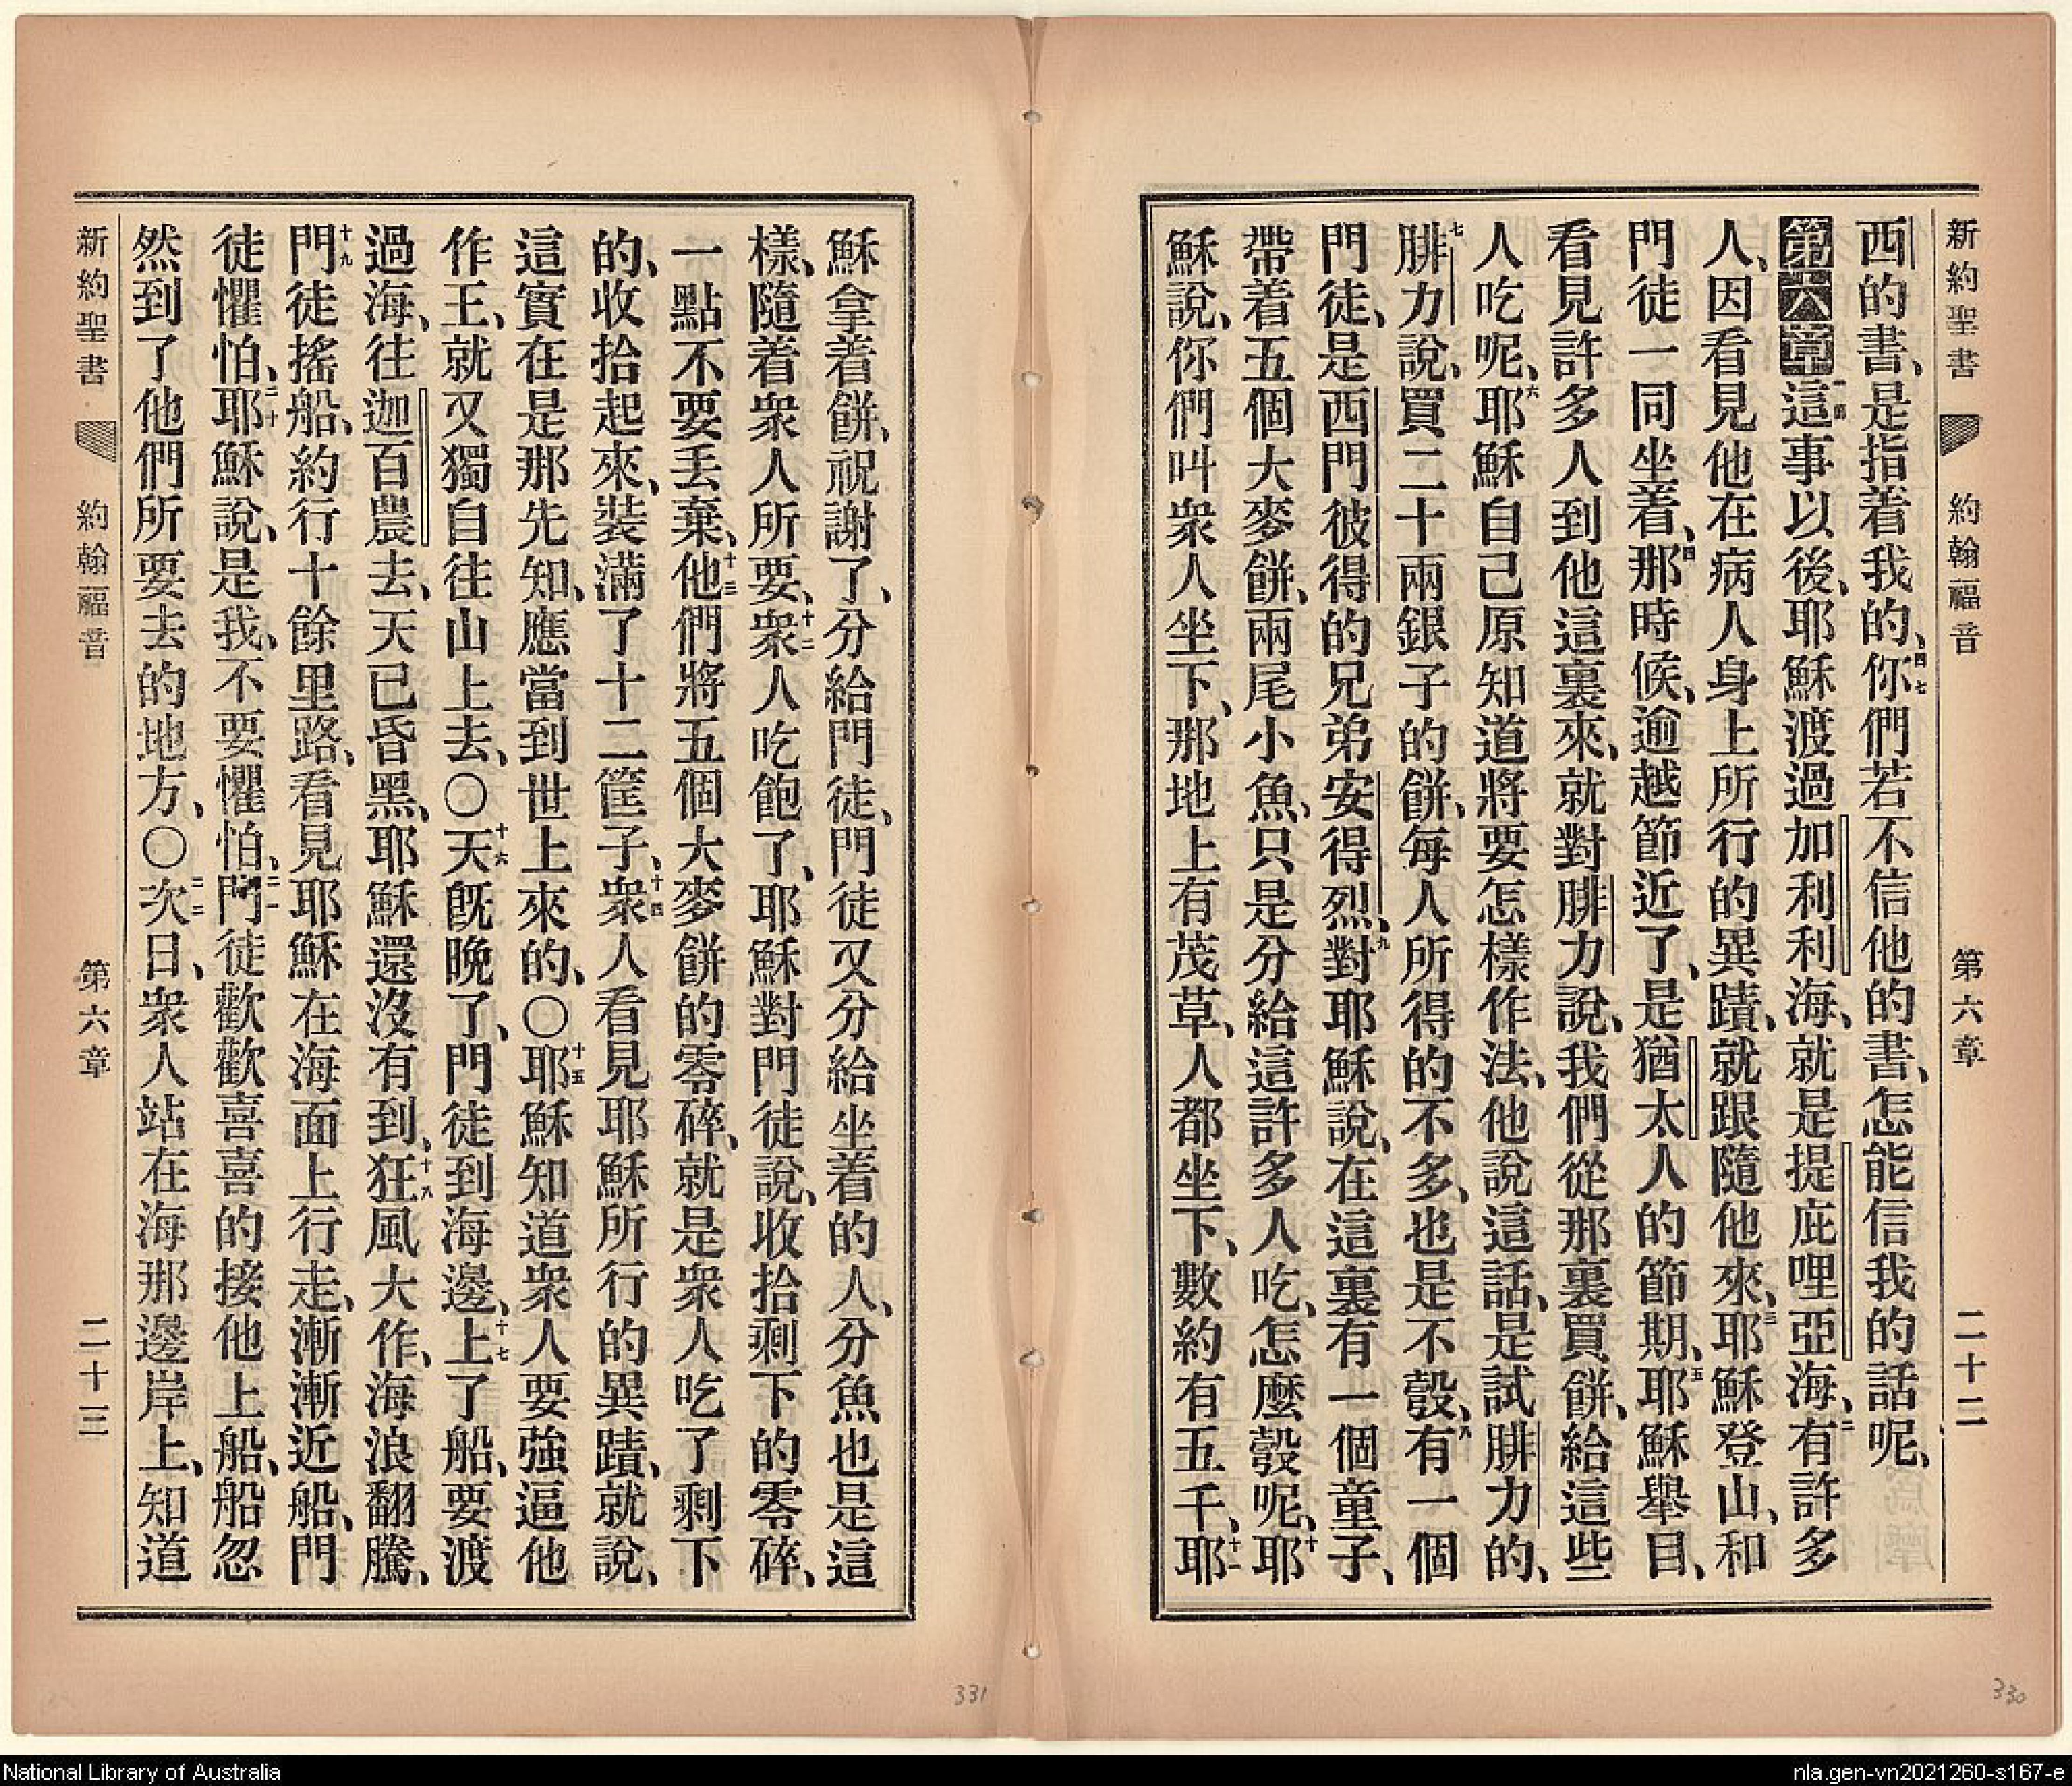 新約聖書 約翰福音 第六章 二十二
西的書、是指着我的、四七你們若不信他的書、怎能信我的話呢、
第六章一節這事以後、耶穌渡過加利利海、就是提庇哩亞海、二有許多
人、因看見他在病人身上所行的異蹟、就跟隨他來、三耶穌登山、和
門徒一同坐着、四那時候、逾越節近了、是猶太人的節期、五耶穌舉目、
看見許多人到他這裏來、就對腓力說、我們從那裏買餅、給這些
人吃呢、六耶穌自己原知道將要怎樣作法、他說這話、是試腓力的、
七腓力說、買二十兩銀子的餅、每人所得的不多、也是不彀、八有一個
門徒、是西門彼得的兄弟安得烈、九對耶穌說、在這裏有一個童子、
帶着五個大麥餅、兩尾小魚、只是分給這許多人吃、怎麼彀呢、十耶
穌說、你們叫衆人坐下、那地上有茂草、人都坐下、數約有五千、十一耶
穌拿着餅、祝謝了、分給門徒、門徒又分給坐着的人、分魚也是這
樣、隨着衆人所要、十二衆人吃飽了、耶穌對門徒說、收拾剩下的零碎、
一點不要丟棄、十三他們將五個大麥餅的零碎、就是衆人吃了剩下
的、收拾起來、裝滿了十二筐子、十四衆人看見耶穌所行的異蹟、就說、
這實在是那先知、應當到世上來的、〇十五耶穌知道衆人要強逼他
作王、就又獨自往山上去、〇十六天旣晚了、門徒到海邊、十七上了船、要渡
過海、往迦百農去、天已昏黑、耶穌還沒有到、十八狂風大作、海浪翻騰、
十九門徒搖船、約行十餘里路、看見耶穌在海面上行走、漸漸近船、門
徒懼怕、二十耶穌說、是我、不要懼怕、二一門徒歡歡喜喜的接他上船、船忽
然到了他們所要去的地方、〇二二次日、衆人站在海那邊岸上、知道
新約聖書 約翰福音 第六章 二十三
331
330
National Library of Australia
nla.gen-vn2021260-s167-e